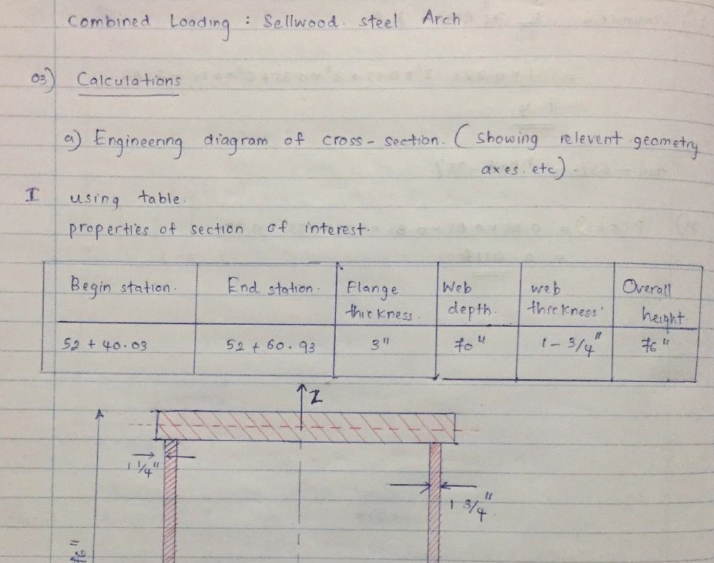 Combined Loading : Sellwood. steel Arch
03) Calculations
a) Engineering diagram of cross-section. (showing relevent geometry
axes. etc)
I using table.
properties of section of interest.
Begin station. End station. Flange thickness. Web depth. web thickness. Overall height
52 + 40.03 52 + 60.93 3" 70" 1-3/4" 76"
Z
1 1/4"
1 3/4"
76"